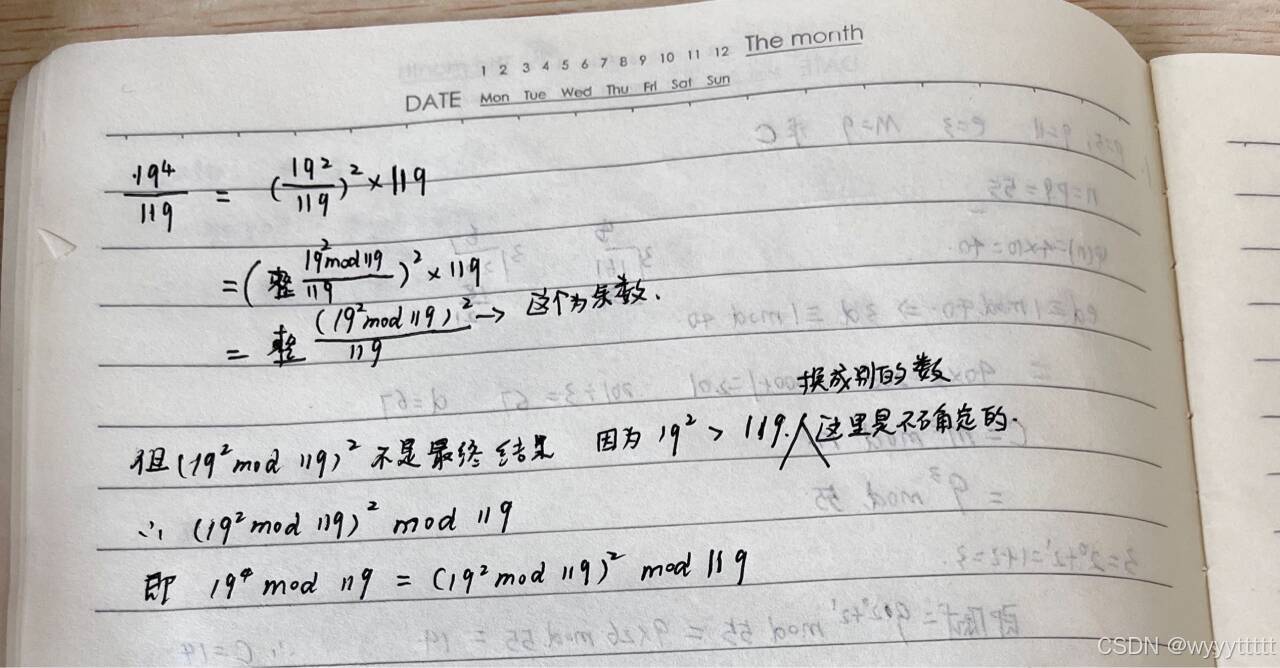 1 2 3 4 5 6 7 8 9 10 11 12 The month
DATE Mon Tue Wed Thu Fri Sat Sun
19⁴/119 = (19²/119)² × 119
= (整 19² mod 119/119)² × 119
= 整 (19² mod 119)²/119 → 这个为余数.
换成别的数
但(19² mod 119)² 不是最终结果 因为 19² > 119. 这里是不确定的.
∴ (19² mod 119)² mod 119
即 19⁴ mod 119 = (19² mod 119)² mod 119
CSDN @wyyyttttt